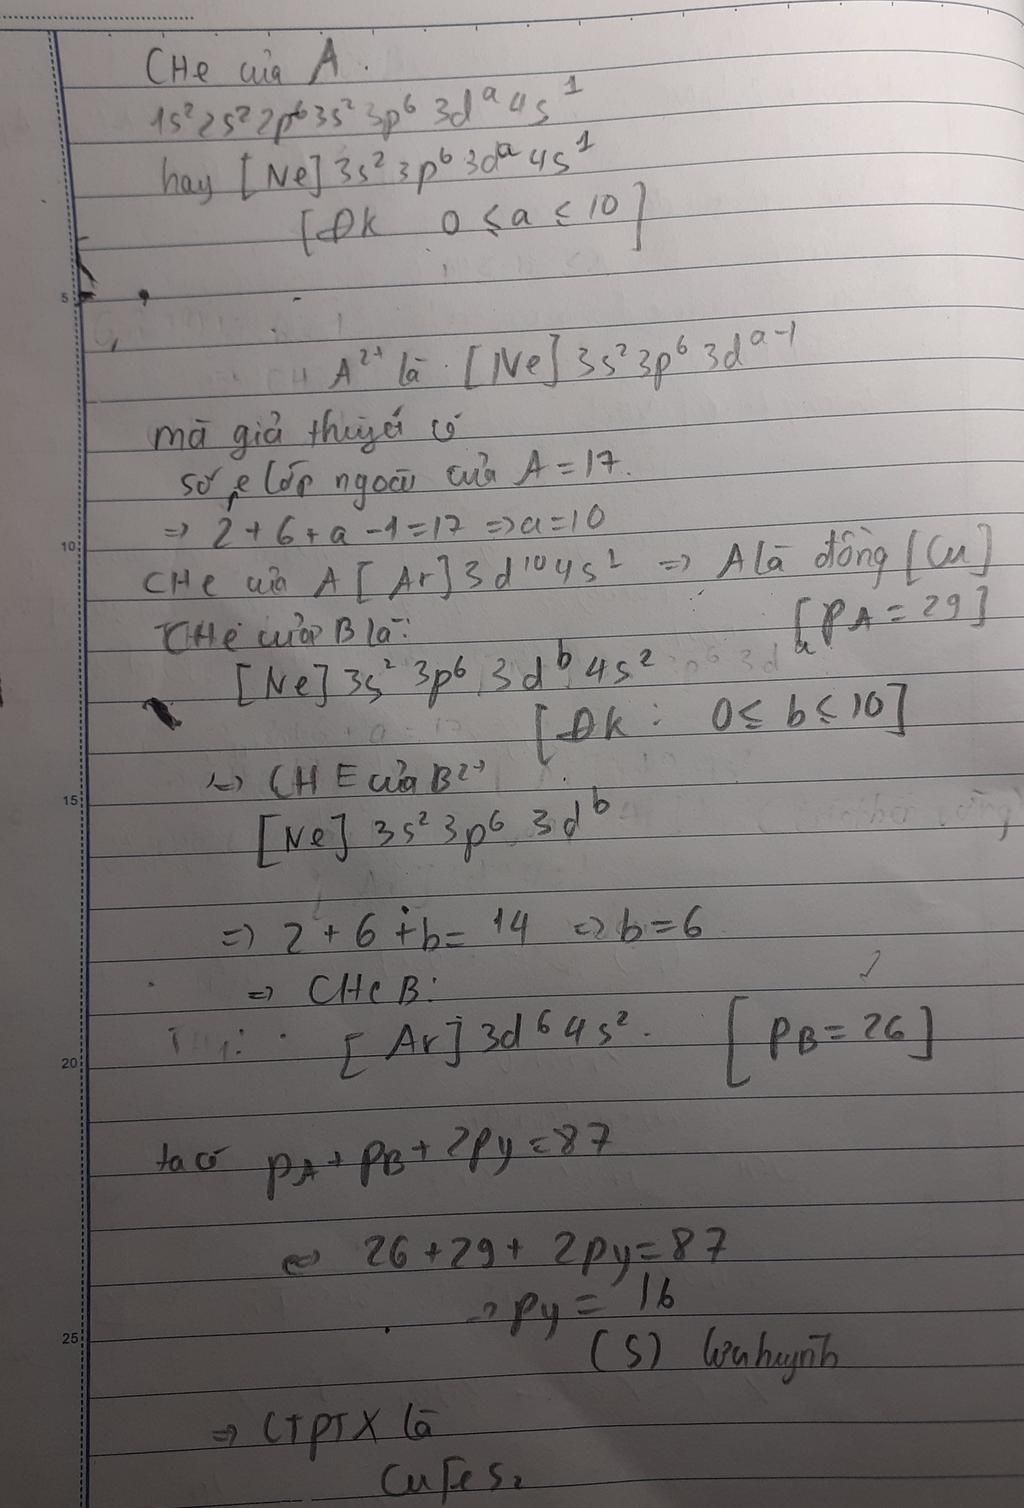 CHe của A.
1s² 2s² 2p⁶ 3s² 3p⁶ 3dᵃ 4s¹
hay [Ne] 3s² 3p⁶ 3dᵃ 4s¹
[Đk 0 ≤ a ≤ 10]
A²⁺ là [Ne] 3s² 3p⁶ 3dᵃ⁻¹
mà giả thuyết có
số e lớp ngoài của A = 17.
=> 2 + 6 + a - 1 = 17 => a = 10
CHe của A [Ar] 3d¹⁰ 4s¹ => A là đồng [Cu]
[pA = 29]
CHe của B là:
[Ne] 3s² 3p⁶ 3dᵇ 4s²
[Đk : 0 ≤ b ≤ 10]
=> CHE của B²⁺
[Ne] 3s² 3p⁶ 3dᵇ
=> 2 + 6 + b = 14 => b = 6
=> CHe B:
[Ar] 3d⁶ 4s². [pB = 26]
ta có pA + pB + 2py = 87
<=> 26 + 29 + 2py = 87
=> py = 16
(S) lưu huỳnh
=> CTPT X là
CuFeS₂
5
10
15
20
25